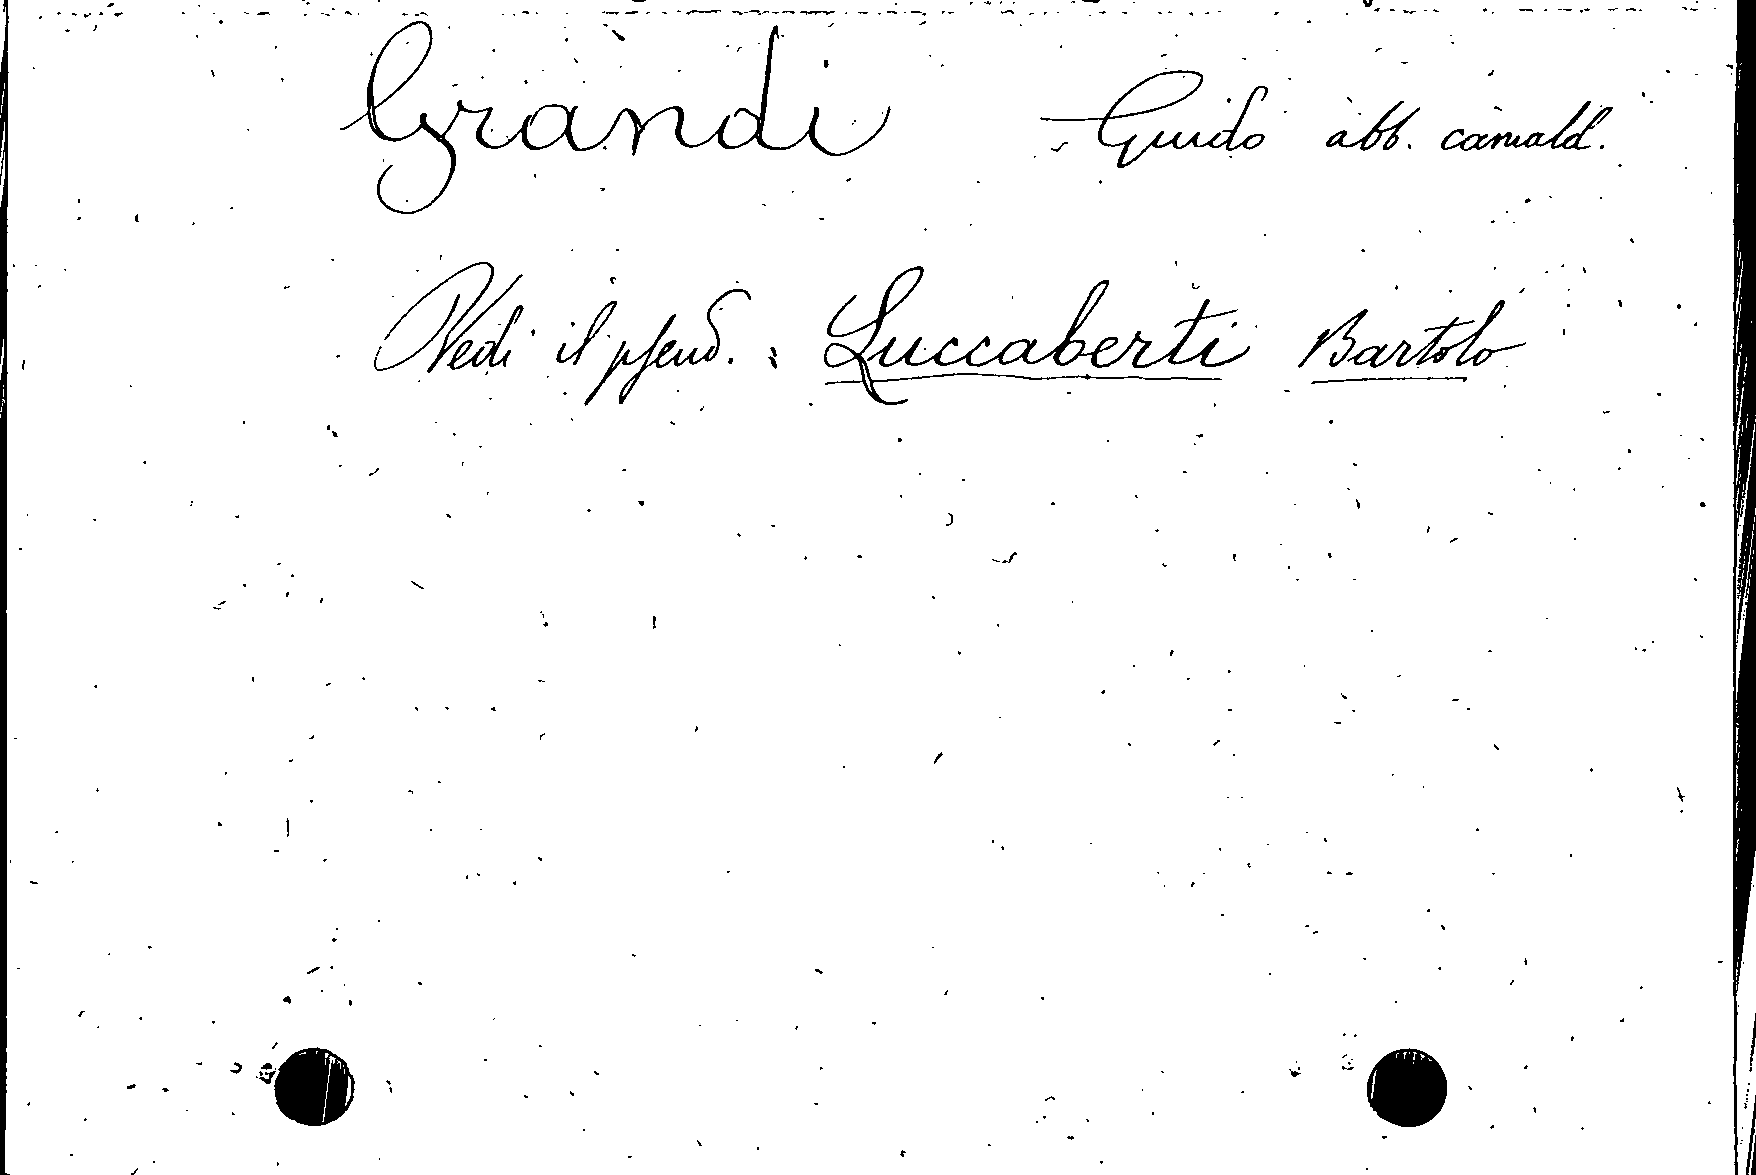 Grandi Guido abb. camald.
Vedi il pseud. : Luccaberti Bartolo